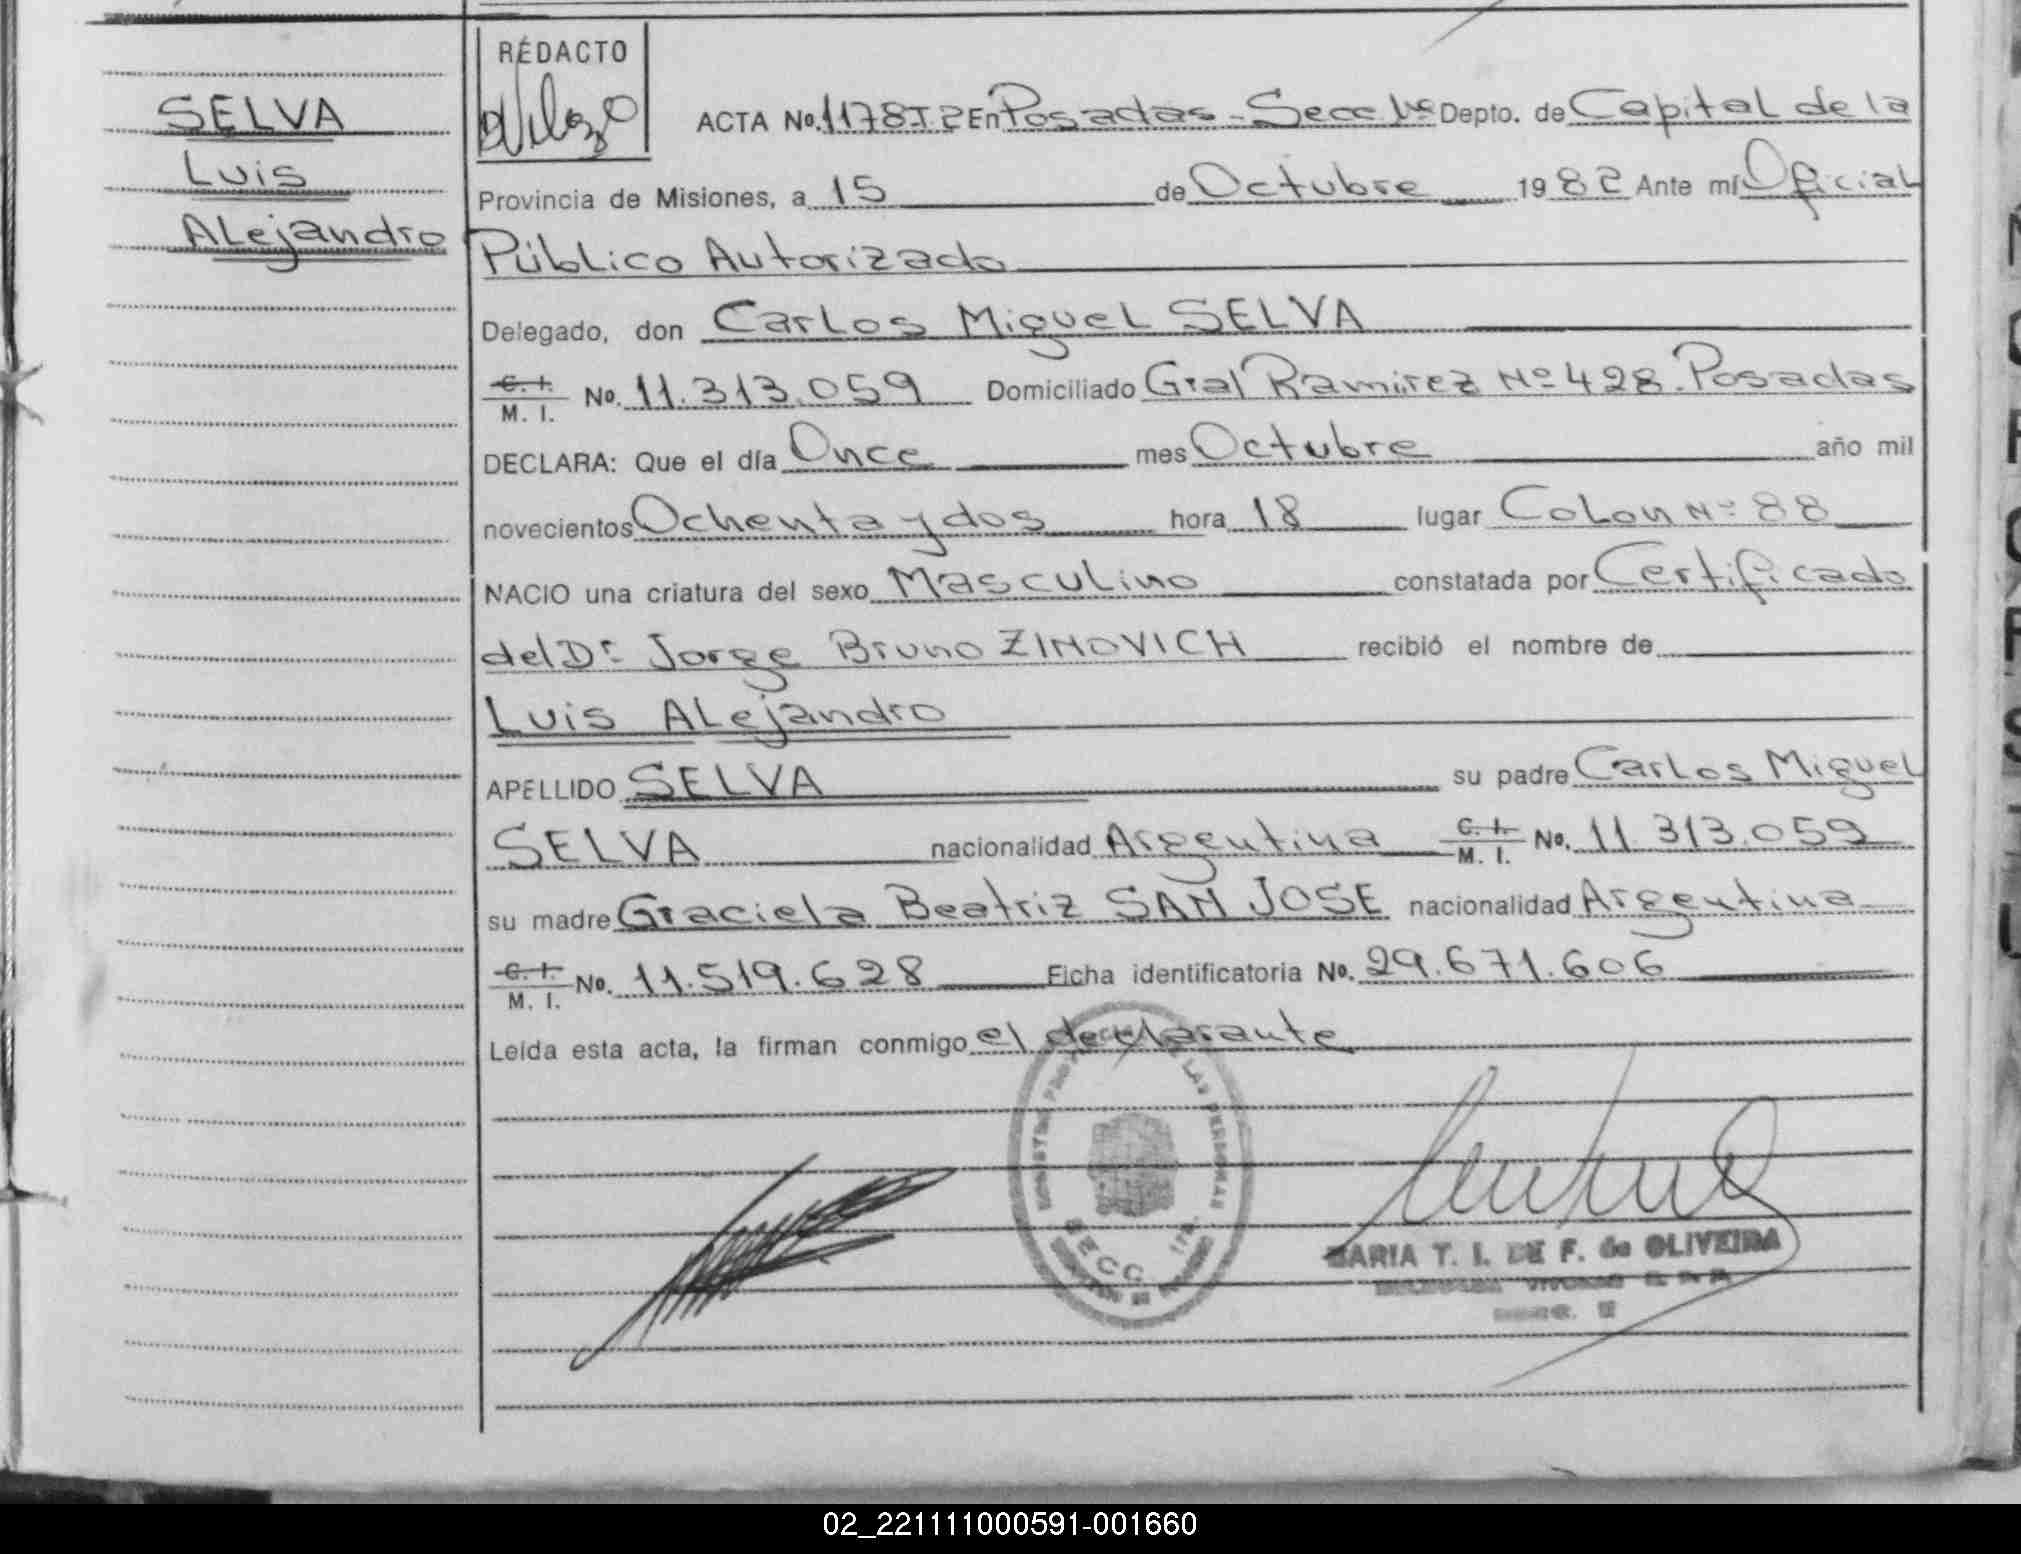 SELVA
Luis
Alejandro
REDACTO
ACTA No. 1178 T.2 En Posadas - Secc 1ra Depto. de Capital de la
Provincia de Misiones, a 15 de Octubre 1982 Ante mí Oficial
Público Autorizado
Delegado, don Carlos Miguel SELVA
C. I. M. I. No. 11.313.059 Domiciliado Gral Ramirez Nº 428. Posadas
DECLARA: Que el día Once mes Octubre año mil
novecientos Ochenta y dos hora 18 lugar Colon Nº 88
NACIO una criatura del sexo Masculino constatada por Certificado
del Dr. Jorge Bruno ZINOVICH recibió el nombre de
Luis Alejandro
APELLIDO SELVA su padre Carlos Miguel
SELVA nacionalidad Argentina C. I. M. I. No. 11.313.059
su madre Graciela Beatriz SAN JOSE nacionalidad Argentina
C. I. M. I. No. 11.519.628 Ficha identificatoria No. 29.671.606
Leida esta acta, la firman conmigo el declarante
LAS PERSONAS
SECC. 1ra.
MARIA T. I. DE F. de OLIVEIRA
02_221111000591-001660